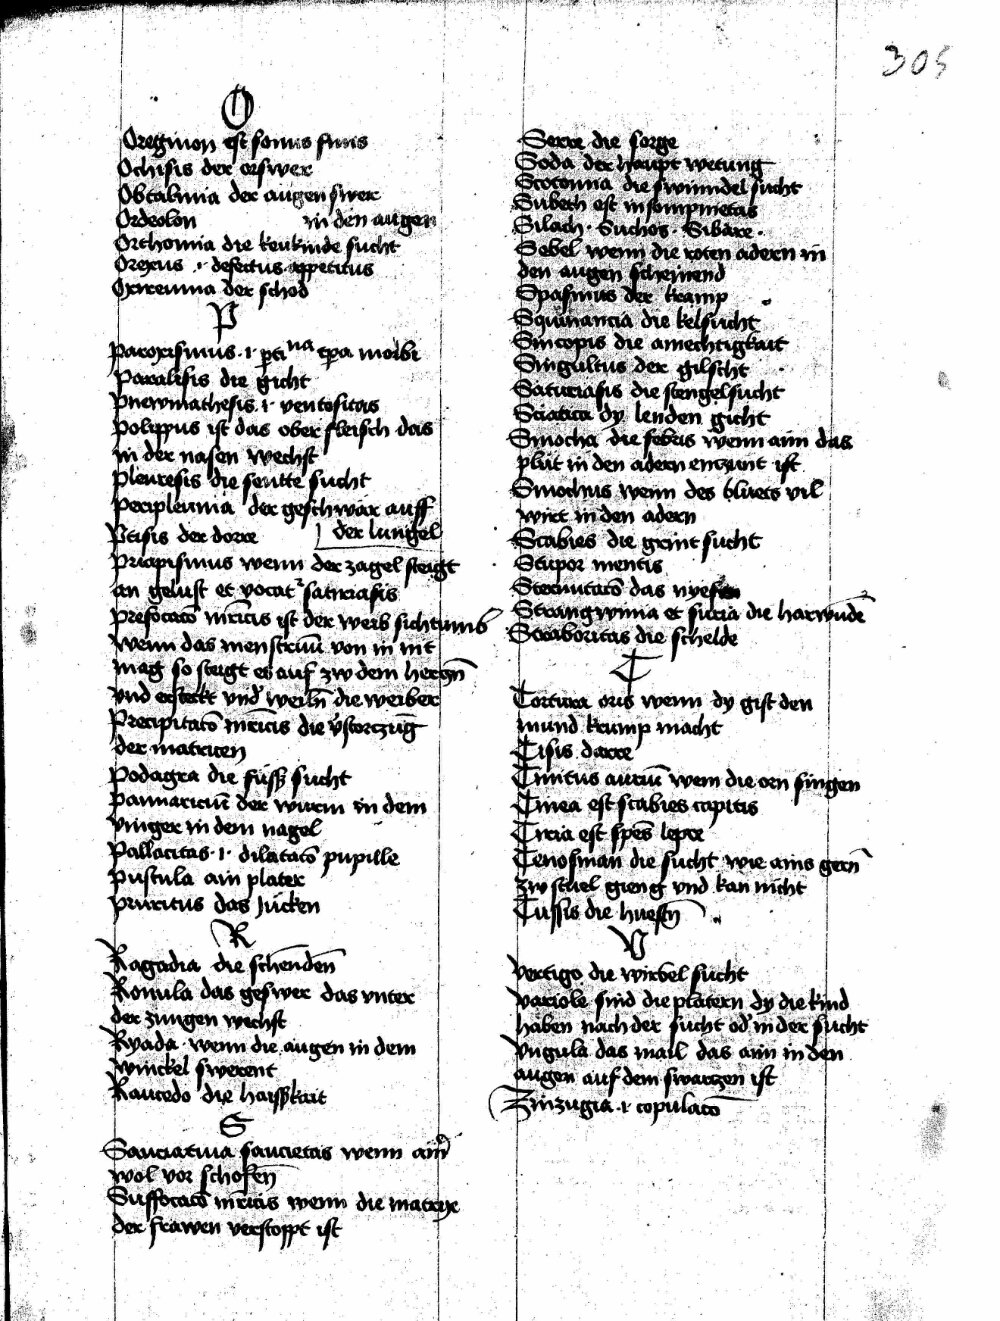 305
O
Oregmon est sonus finis
Ochisis der orswer
Obtalmia der augen swer
Ordeolon in den augen
Orthomia die keukinde sucht
Orexus ·i· defectus appetitus
der schod
P
Paroxismus ·i· morbi
Paralisis die gicht
Pnewmathesis ·i· ventositas
Polippus ist das ober fleisch das
in der nasen wechst
Pleuresis die seutte sucht
Peripleumia der geschwär auff
Ptisis der dorre der lungel
Priapismus wenn der zagel steigt
an gelust et vocat satiriasis
Prefocato mricis ist der weib
wenn das menstruu von in nit
mag so steigt es auf zw dem herczn
vnd ersteckt vnd die weiber
Precipitato mricis die vstorczug
der matricen
Podagra die füss sucht
Pannariciu der wurm in dem
vinger in dem nagel
Pallacitas ·i· dilatato pupille
Pustula ain plater
Pruritus das Jucken
R
Ragadia die schrenden
Ronula das geswer das vnter
der zungen wechst
Ryada · wenn die augen in dem
winckel swerent
Raucedo die haisskait
S
saucietas wenn ain
wol vor schofen
Suffocato mricis wenn die matrix
der frawen verstoppt ist
Serre die sorge
Soda der haupt wetung
Scotomia die swindel sucht
Subeth est in sompnietas
Silach · Suchos · Sibare ·
Sebel wenn die roten adern in
den augen scheinend
Spasmus der kramp
Squinancia die kelsucht
Sincopis die amechtigkait
Singultus der gilscht
Satiriasis die stengelsucht
Sciatica dy lenden gicht
Sinocha die febris wenn ain das
plut in den adern enczunt ist
Sinochus wenn des bluets vil
wirt in den adern
Scabies die grint sucht
Stupor mentis
Sternutato das nyesen
Strangwiria et suria die harwinde
die schelde
T
Tortura oris wenn dy gist den
mund krump macht
Tisis darre
Tinitus auriu wem die oren singen
Tinea est scabies capitis
Tiria est spes lepre
Tenosman die sucht wie ains gern
zw stuel gieng vnd kan nicht
Tussis die huestn
V
Vertigo die wirbel sucht
Variole sind die platern dy die kind
haben nach der sucht od in der sucht
Vngula das mail das ain in den
augen auf dem swarczen ist
Zinzugia ·i· copulato